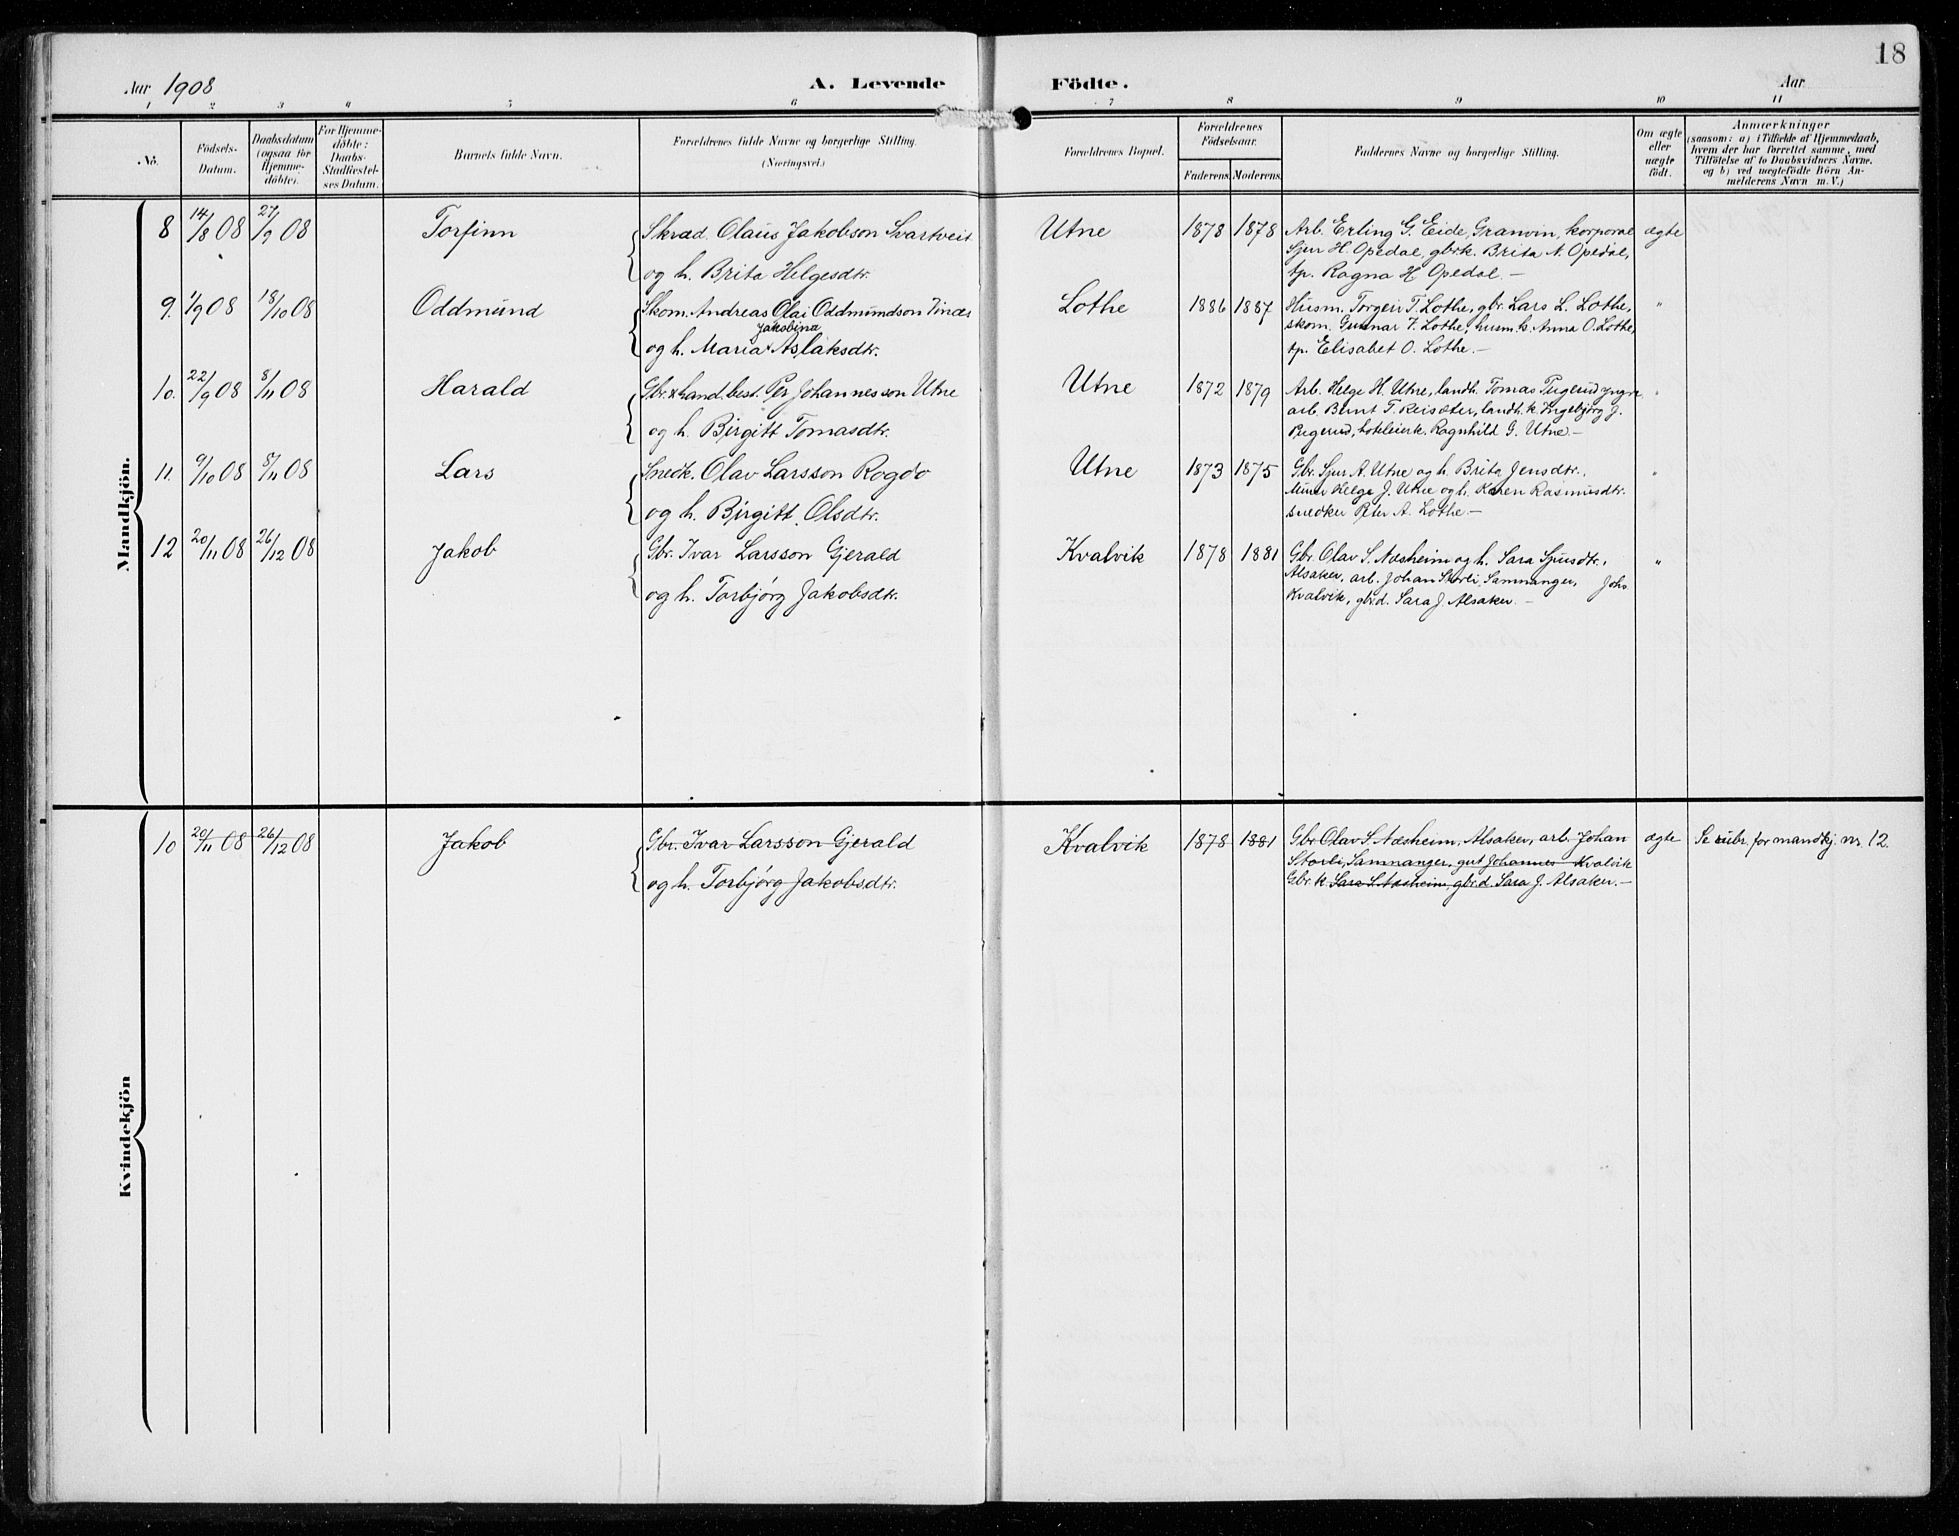 18
Aar 1908 A. Levende Födte. Aar
1 2 3 4 5 6 7 8 9 10 11
No. Födsels-Datum. Daabsdatum (ogsaa for Hjemme-döbte). For Hjemme-döbte: Daabs-Stadfæstel-ses Datum. Barnets fulde Navn. Forældrenes fulde Navne og borgerlige Stilling. (Næringsvei.) Forældrenes Bopæl. Forældrenes Födselsaar. Faderens. Moderens. Faddernes Navne og borgerlige Stilling. Om ægte eller uægte födt. Anmærkninger (saasom: a) i Tilfælde af Hjemmedaab, hvem der har forrettet samme, med Tilföielse af to Daabsvidners Navne, og b) ved uægtefödte Börn An-melderens Navn m. V.)
Mandkjön.
8 14/8 08 27/9 08 Torfinn Skræd. Olaus Jakobson Svartveit Utne 1878 1878 Arb. Erling G. Eide, Granvin, korporal ægte
Sjur H. Opedal, gbrk. Brita N. Opedal,
og h. Brita Helgesdtr. tp. Ragna H. Opedal.—
9. 1/9 08 18/10 08 Oddmund Skom. Andreas Olai Oddmundson Lothe 1886 1887 Husm. Torgeir T. Lothe, gbr. Lars L. Lothe, "
Jakobina skom. Gunnar T. Lothe, husm.k. Anna O. Lothe,
og h. Maria Aslaksdtr. tp. Elisabet O. Lothe.—
10. 22/9 08 8/11 08 Harald Gbr. & hand. best. Per Johannesson Utne Utne 1872 1879 Arb. Helge H. Utne, landh. Tomas "
arb. Bernt T. Reisæter, landh. k. Ingebjørg J.
og h. Birgitt Tomasdtr. hoteleierk. Ragnhild G. Utne.—
11. 9/10 08 8/11 08 Lars Snedk. Olav Larsson Rogdo Utne 1873 1875 Gbr. Sjur A. Utne og h. Brita Jensdtr., "
Murer Helge J. Utne og h. Karen Rasmusdtr.
og h. Birgitt Olsdtr. snedker Peter A. Lothe.—
12 20/11 08 26/12 08 Jakob Gbr. Ivar Larsson Gjerald Kvalvik 1878 1881 Gbr. Olav S. Næsheim og h. Sara Sjursdtr., "
Alsaker, arb. Johan Storli, Samnanger, Johs.
og h. Torbjørg Jakobsdtr. Kvalvik, gbrd. Sara J. Alsaker.—
Kvindekjön
10 20/11 08 26/12 08 Jakob Gbr. Ivar Larsson Gjerald Kvalvik 1878 1881 Gbr. Olav S. Næsheim, Alsaker, arb. Johan ægte Se rubr. for mandkj. nr. 12.
Storli, Samnanger, gut Johannes Kvalvik
og h. Torbjørg Jakobsdtr. Gbr. k. Sara S. Næsheim, gbrd. Sara J. Alsaker.—